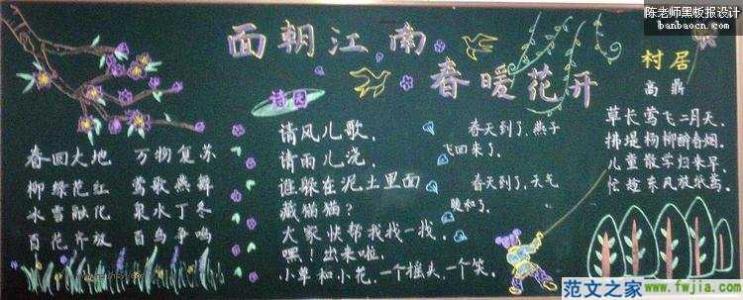 陈老师黑板报设计
banbaocn.com
面朝江南
春暖花开
春回大地 万物复苏
柳绿花红 莺歌燕舞
冰雪融化 泉水丁冬
百花齐放 百鸟争鸣
诗园
请风儿歌,
请雨儿浇,
谁躲在泥土里面
藏猫猫?
大家快帮我找一找,
嘿!出来啦,
小草和小花,一个摇头,一个笑。
春天到了,燕子
飞回来了。
春天到了,天气
暖和了。
村居
高鼎
草长莺飞二月天,
拂堤杨柳醉春烟。
儿童散学归来早,
忙趁东风放纸鸢。
范文之家
www.fwjia.com